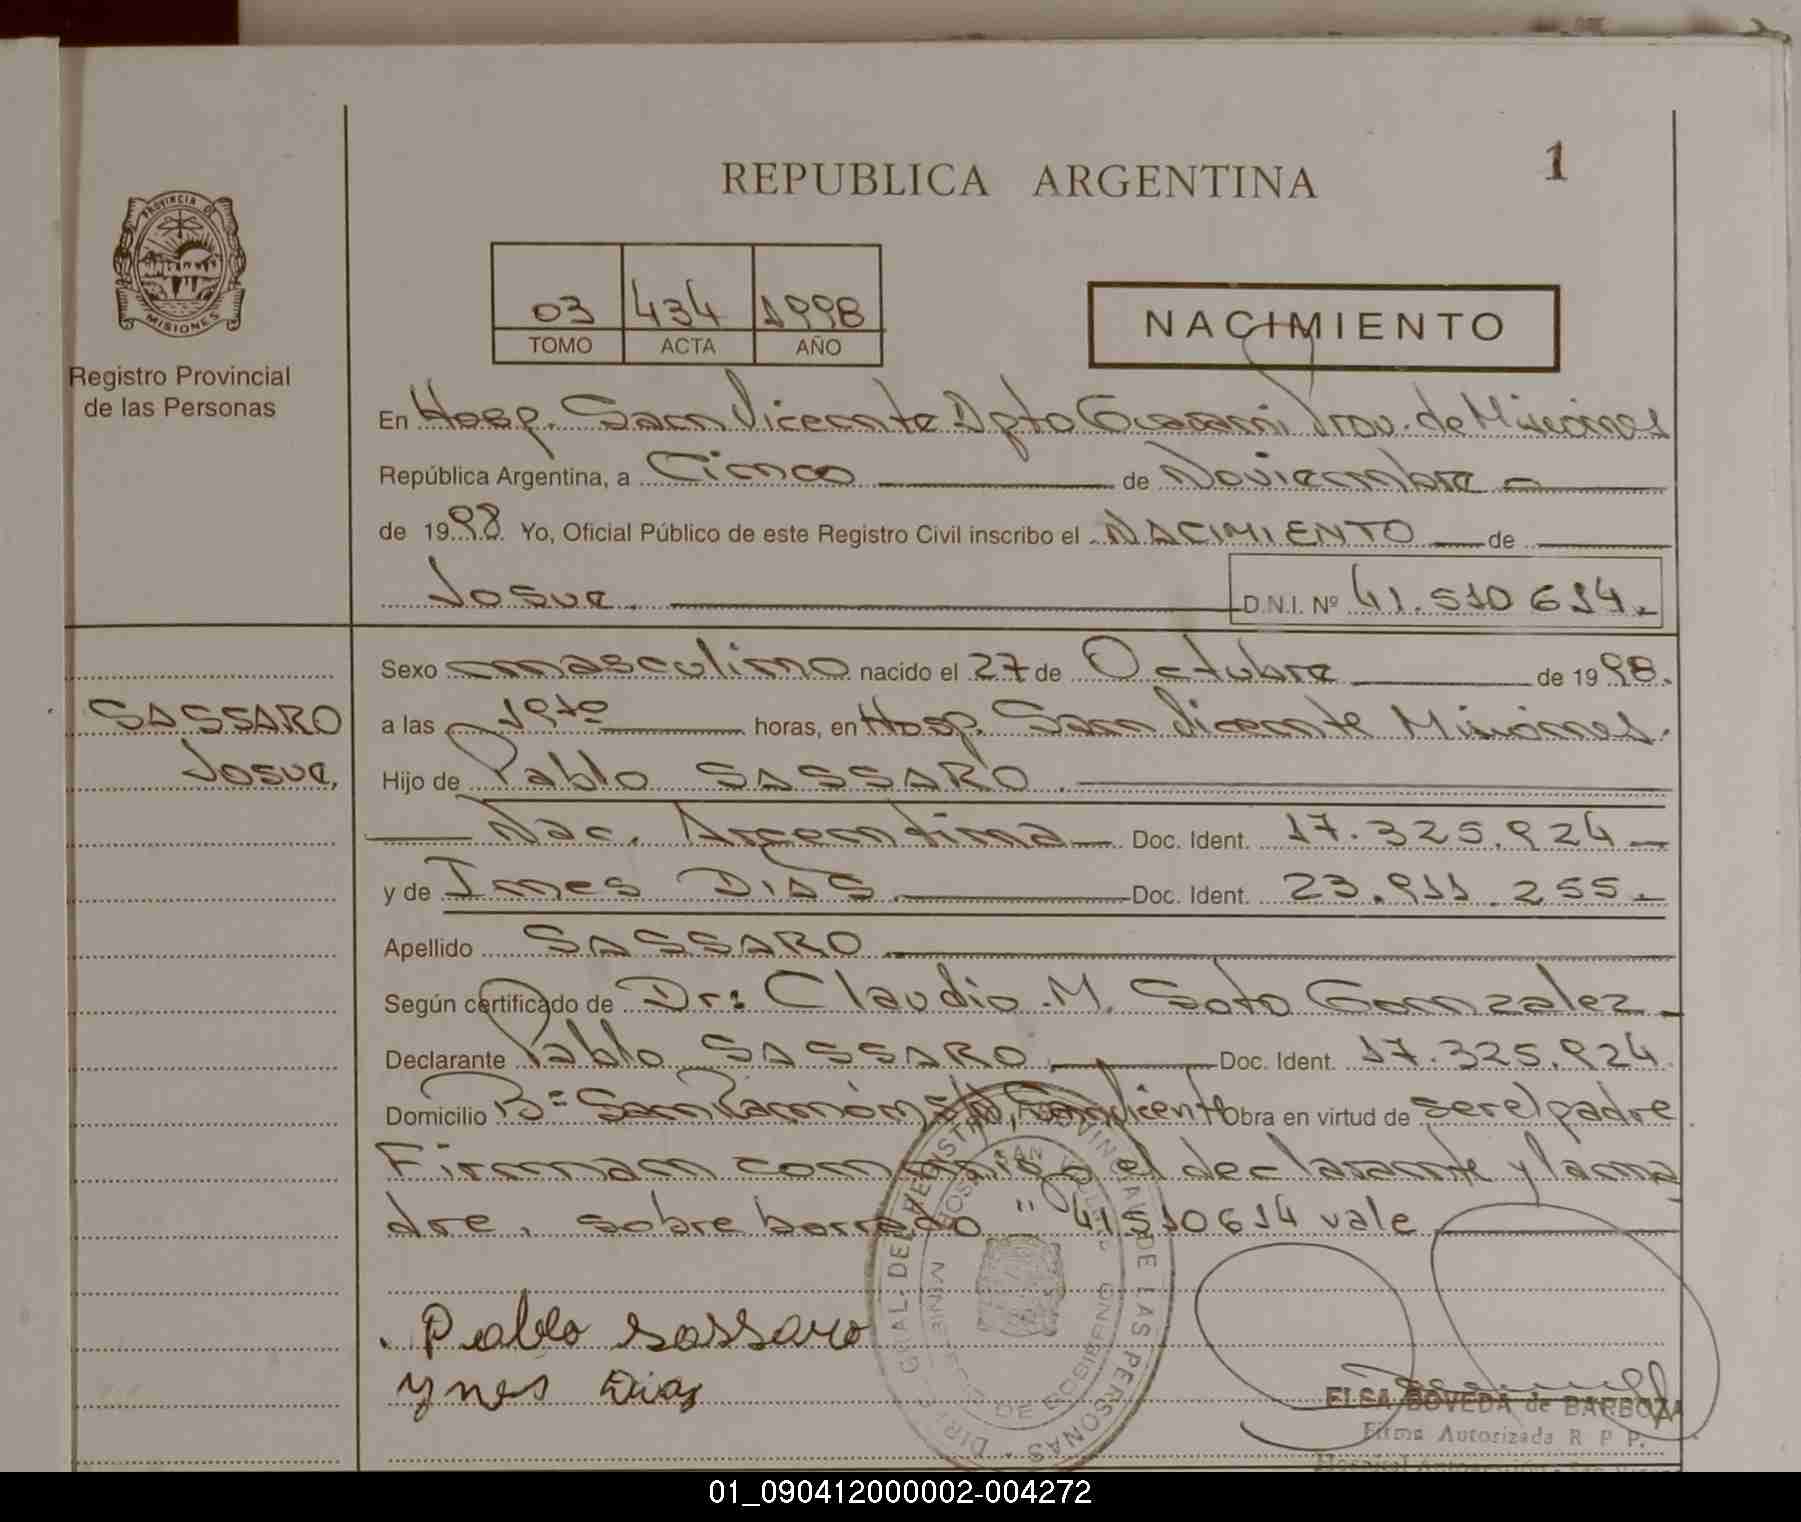 REPUBLICA ARGENTINA
1
PROVINCIA DE
MISIONES
Registro Provincial
de las Personas
03 434 1998
TOMO ACTA AÑO
NACIMIENTO
En Hosp. San Vicente Dpto Guarani Prov. de Misiones
República Argentina, a Cinco de Noviembre
de 1998. Yo, Oficial Público de este Registro Civil inscribo el NACIMIENTO de
Josue. D.N.I. Nº 41.510614.
Sexo masculino nacido el 27 de Octubre de 1998.
SASSARO
Josue,
a las 19,10 horas, en Hosp. San Vicente Misiones.
Hijo de Pablo SASSARO.
Nac. Argentina Doc. Ident. 17.325.924
y de Ines DIAS. Doc. Ident. 23.911.255.
Apellido SASSARO
Según certificado de Dr: Claudio M. Soto Gonzalez
Declarante Pablo SASSARO, Doc. Ident. 17.325.924
Domicilio Bº San Ramón San Vicente Obra en virtud de ser el padre
Firman conmigo el declarante y la ma
dre. sobre borrado "41510614 vale
Pablo sassaro
ynes Dias
ELSA BOVEDA de BARBOZA
Firma Autorizada R P P.
01_090412000002-004272